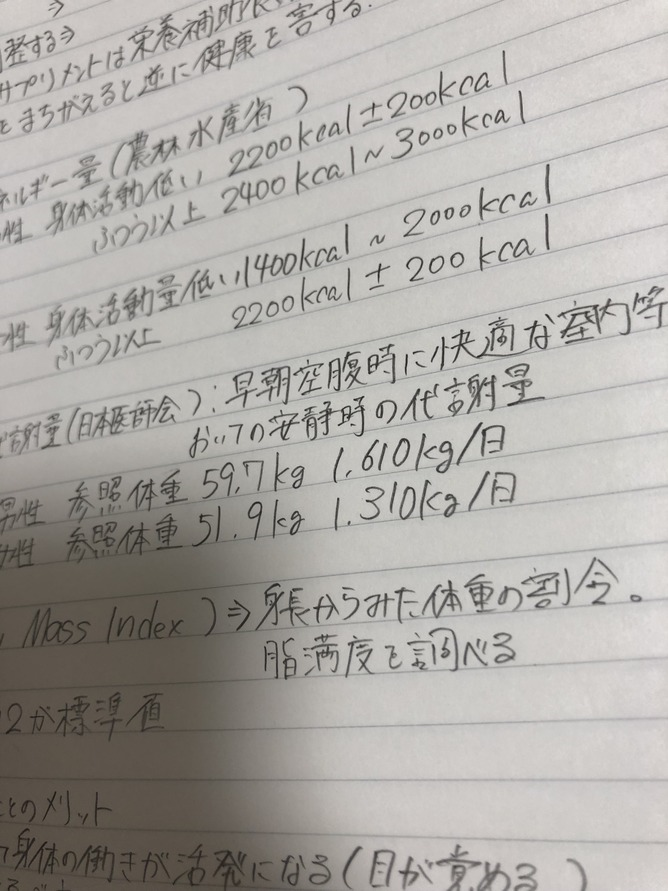 整する⇒
サプリメントは栄養補助
をまちがえると逆に健康を害する.
ネルギー量(農林水産省)
性 身体活動低い 2200kcal±200kcal
ふつう以上 2400kcal~3000kcal
性 身体活動量低い 1400kcal ~ 2000kcal
ふつう以上 2200kcal ± 200kcal
謝量(日本医師会):早朝空腹時に快適な室内等
おいての安静時の代謝量
男性 参照体重 59.7kg 1.610kg/日
性 参照体重 51.9kg 1.310kg/日
Mass Index )⇒身長からみた体重の割合。
脂満度を調べる
2が標準値
とのメリット
身体の働きが活発になる(目が覚める)